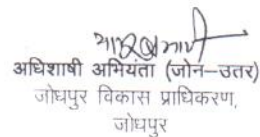 अधिशाषी अभियंता (जोन–उतर)
जोधपुर विकास प्राधिकरण,
जोधपुर